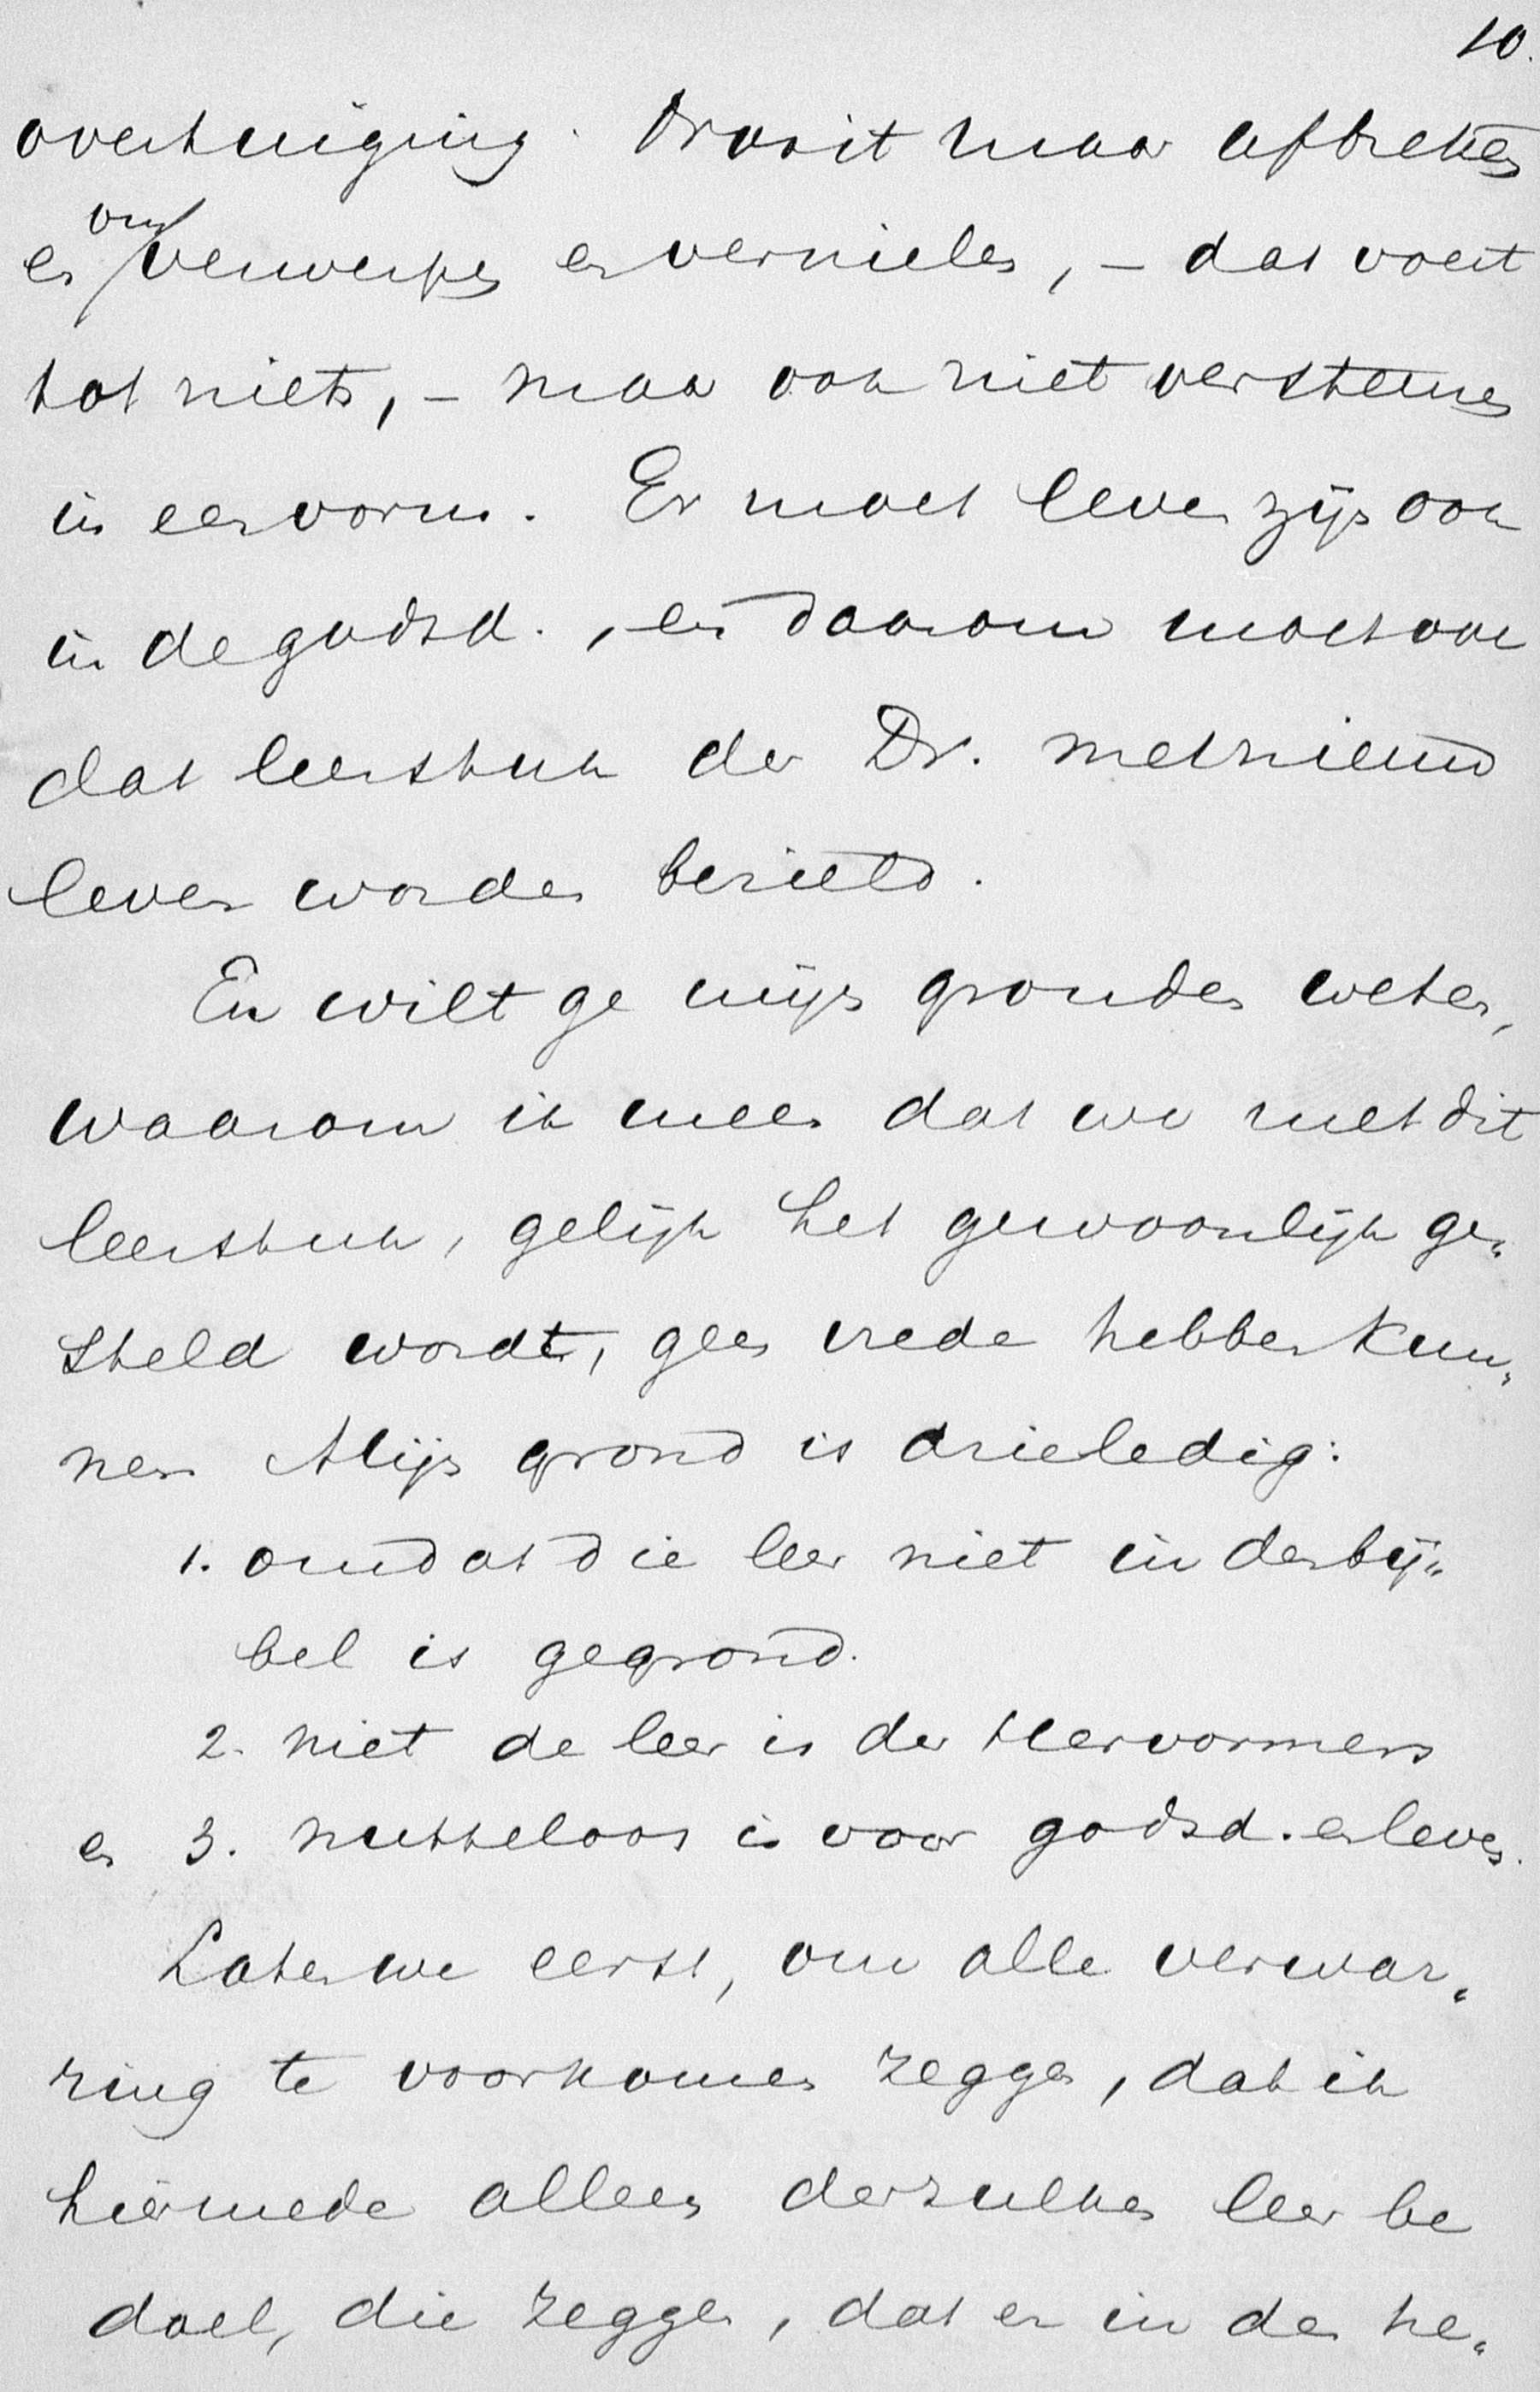 10.
overtuiging. Nooit maar afbreken
en omverwerpen en vernielen, – dat voert
tot niets, – maar ook niet versteenen
in een vorm. Er moet leven zijn ook
in de godsd., en daarom moet ook
dat leerstuk der Dr. met nieuw
leven worden bezield.
En wilt ge mijn gronden weten,
waarom ik meen dat we met dit
leerstuk, gelijk het gewoonlijk ge„
steld wordt, geen vrede hebben kun„
nen Mijn grond is drieledig:
1. omdat die leer niet in den bij„
bel is gegrond.
2. niet de leer is der Hervormers
en 3. nutteloos is voor godsd. en leven.
Laten we eerst, om alle verwar„
ring te voorkomen zeggen, dat ik
hiermede alleen derzulken leer be
doel, die zeggen, dat er in den he„